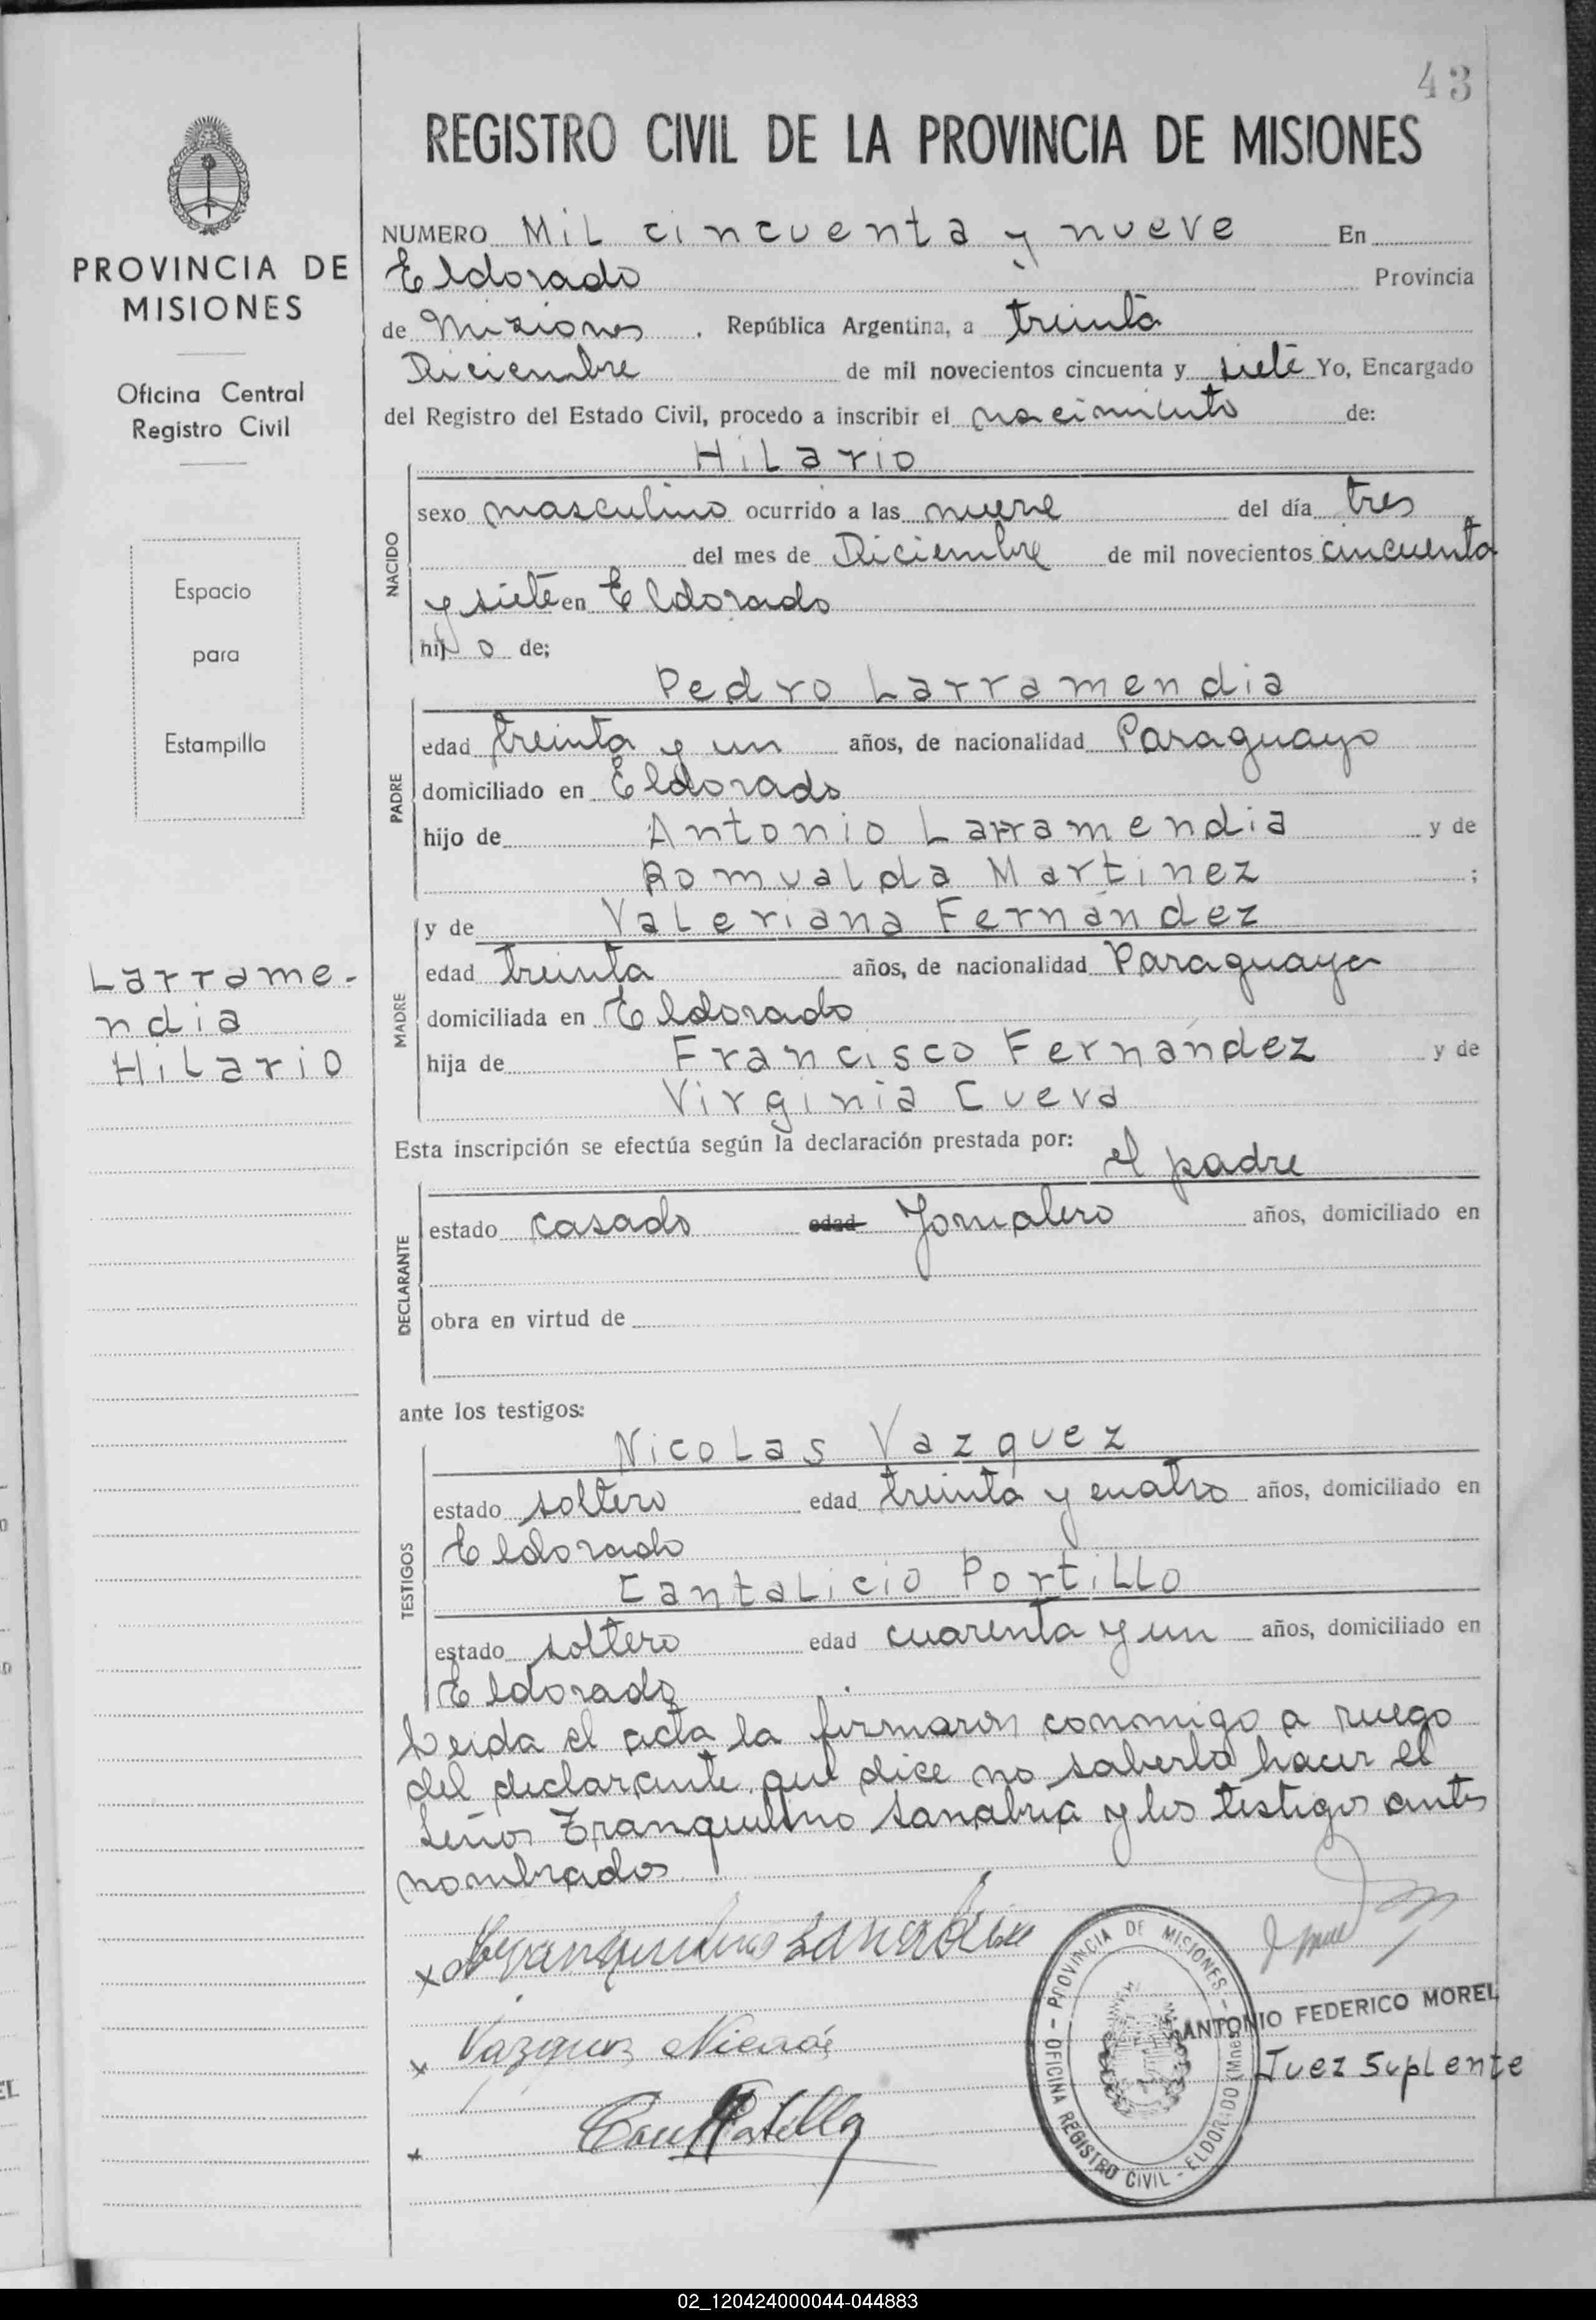 43
REGISTRO CIVIL DE LA PROVINCIA DE MISIONES
PROVINCIA DE
MISIONES
Oficina Central
Registro Civil
Espacio
para
Estampilla
Larrame-
ndia
Hilario
NUMERO Mil cincuenta y nueve En
Eldorado Provincia
de Misiones. República Argentina, a treinta
Diciembre de mil novecientos cincuenta y siete Yo, Encargado
del Registro del Estado Civil, procedo a inscribir el nacimiento de:
NACIDO
Hilario
sexo masculino ocurrido a las nueve del día tres
del mes de Diciembre de mil novecientos cincuenta
y siete en Eldorado
hijo de;
PADRE
Pedro Larramendia
edad treinta y un años, de nacionalidad Paraguayo
domiciliado en Eldorado
hijo de Antonio Larramendia y de
Romualda Martinez ;
MADRE
y de Valeriana Fernández
edad treinta años, de nacionalidad Paraguaya
domiciliada en Eldorado
hija de Francisco Fernández y de
Virginia Cueva
Esta inscripción se efectúa según la declaración prestada por:
el padre
DECLARANTE
estado casado edad Jornalero años, domiciliado en
obra en virtud de
ante los testigos:
TESTIGOS
Nicolas Vazquez
estado soltero edad treinta y cuatro años, domiciliado en
Eldorado
Cantalicio Portillo
estado soltero edad cuarenta y un años, domiciliado en
Eldorado
Leida el acta la firmaron conmigo a ruego
del declarante que dice no saberlo hacer el
señor Tranquilino Sanabria y los testigos antes
nombrados
x Tranquilino Sanabria
x Vazquez Nicolás
x Cant Portillo
PROVINCIA DE MISIONES - OFICINA REGISTRO CIVIL - ELDORADO (Mnes)
ANTONIO FEDERICO MOREL
Juez Suplente
02_120424000044-044883